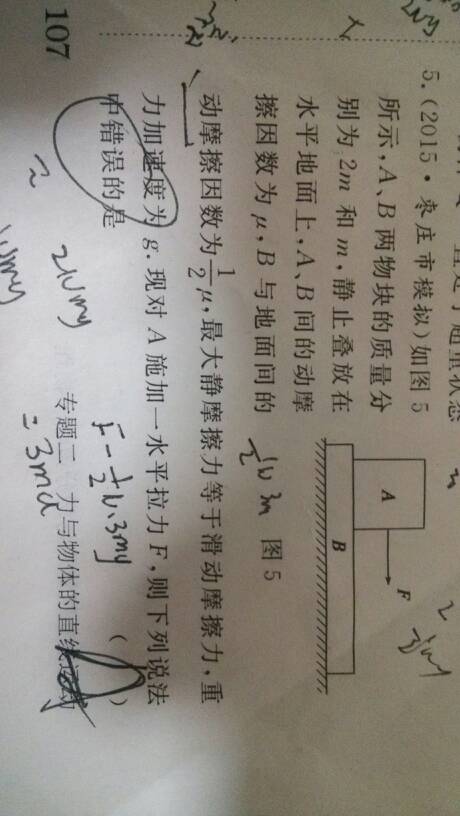 直处于超重状态
5.(2015·枣庄市模拟)如图5
所示,A、B两物块的质量分
别为2m和m,静止叠放在
水平地面上,A、B间的动摩
擦因数为μ,B与地面间的
动摩擦因数为\frac{1}{2}μ,最大静摩擦力等于滑动摩擦力,重
力加速度为g.现对A施加一水平拉力F,则下列说法
中错误的是 ( )
A
F
B
图5
F-\frac{1}{2}μ·3mg
=3ma
2μmg
专题二 力与物体的直线运动
107